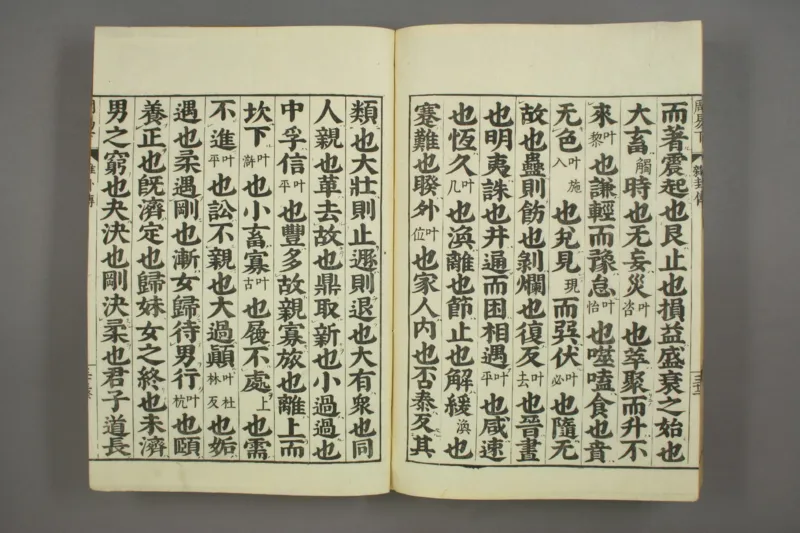 而著震起也艮止也損益盛衰之始也
大畜觸時也无妄災叶咨也萃聚而升不
來叶黎也謙輕而豫怠叶怡也噬嗑食也賁
无色叶施入也兌見現而巽伏叶必也隨无
故也蠱則飭也剝爛也復反叶去也晉晝
也明夷誅也井通而困相遇叶平也咸速
也恆久叶几也渙離也節止也解緩渙也
蹇難也睽外叶位也家人内也否泰反其
類也大壯則止遯則退也大有衆也同
人親也革去故也鼎取新也小過過也
中孚信叶平也豐多故親寡旅也離上而
坎下叶滸也小畜寡叶古也履不處上也需
不進叶平也訟不親也大過顛叶杜林反也姤
遇也柔遇剛也漸女歸待男行叶杭也頤
養正也旣濟定也歸妹女之終也未濟
男之窮也夬決也剛決柔也君子道長
周易下
雜卦傳